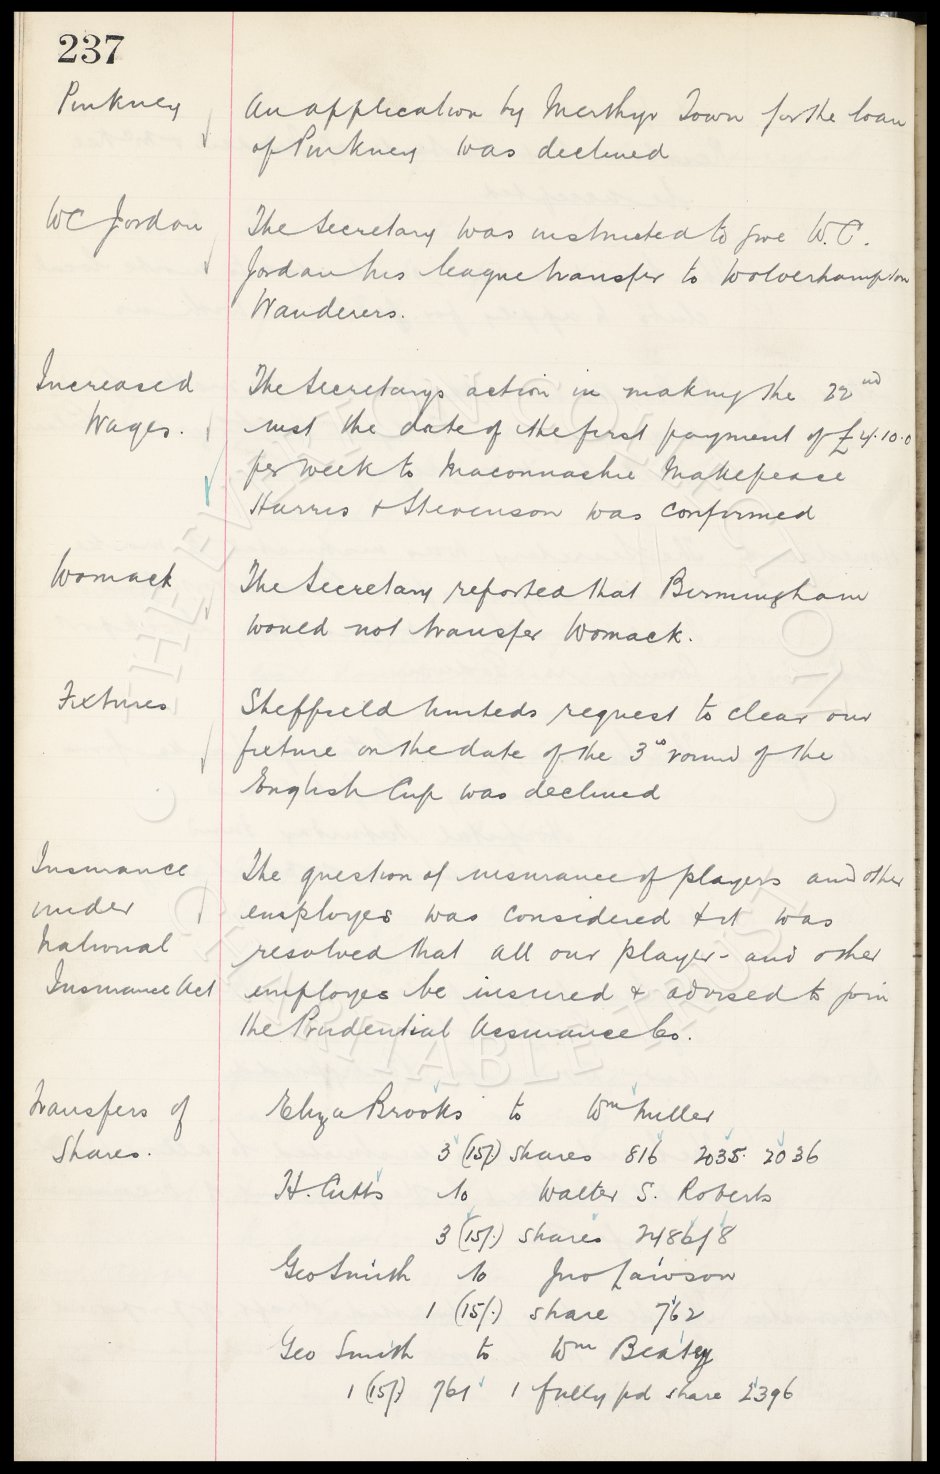 237
Pinkney
An application by Merthyr Town for the loan
of Pinkney was declined
WC Jordan
The Secretary was instructed to give W.C.
Jordan his league transfer to Wolverhampton
Wanderers.
Increased
Wages.
The Secretarys action in making the 22nd
inst the date of the first payment of £4.10.0
per week to Maconnachie Makepeace
Harris & Stevenson was confirmed
Womack
The Secretary reported that Birmingham
would not transfer Womack.
Fixtures
Sheffield Uniteds request to clear our
fixture on the date of the 3rd round of the
English Cup was declined
Insurance
under
National
Insurance Act
The question of insurance of players and other
employes was considered & it was
resolved that all our players and other
employes be insured & advised to join
the Prudential Assurance Co.
Transfers of
Shares.
Eliza Brooks to Wm Miller
3 (15/) shares 816 2035. 2036
H. Cutts to Walter S. Roberts
3 (15/.) shares 2486/8
Geo Smith to Jno Lawson
1 (15/.) share 762
Geo Smith to Wm Beatty
1 (15/) 761 1 fully pd share 2396
THE EVERTON COLLECTION
CHARITABLE TRUST